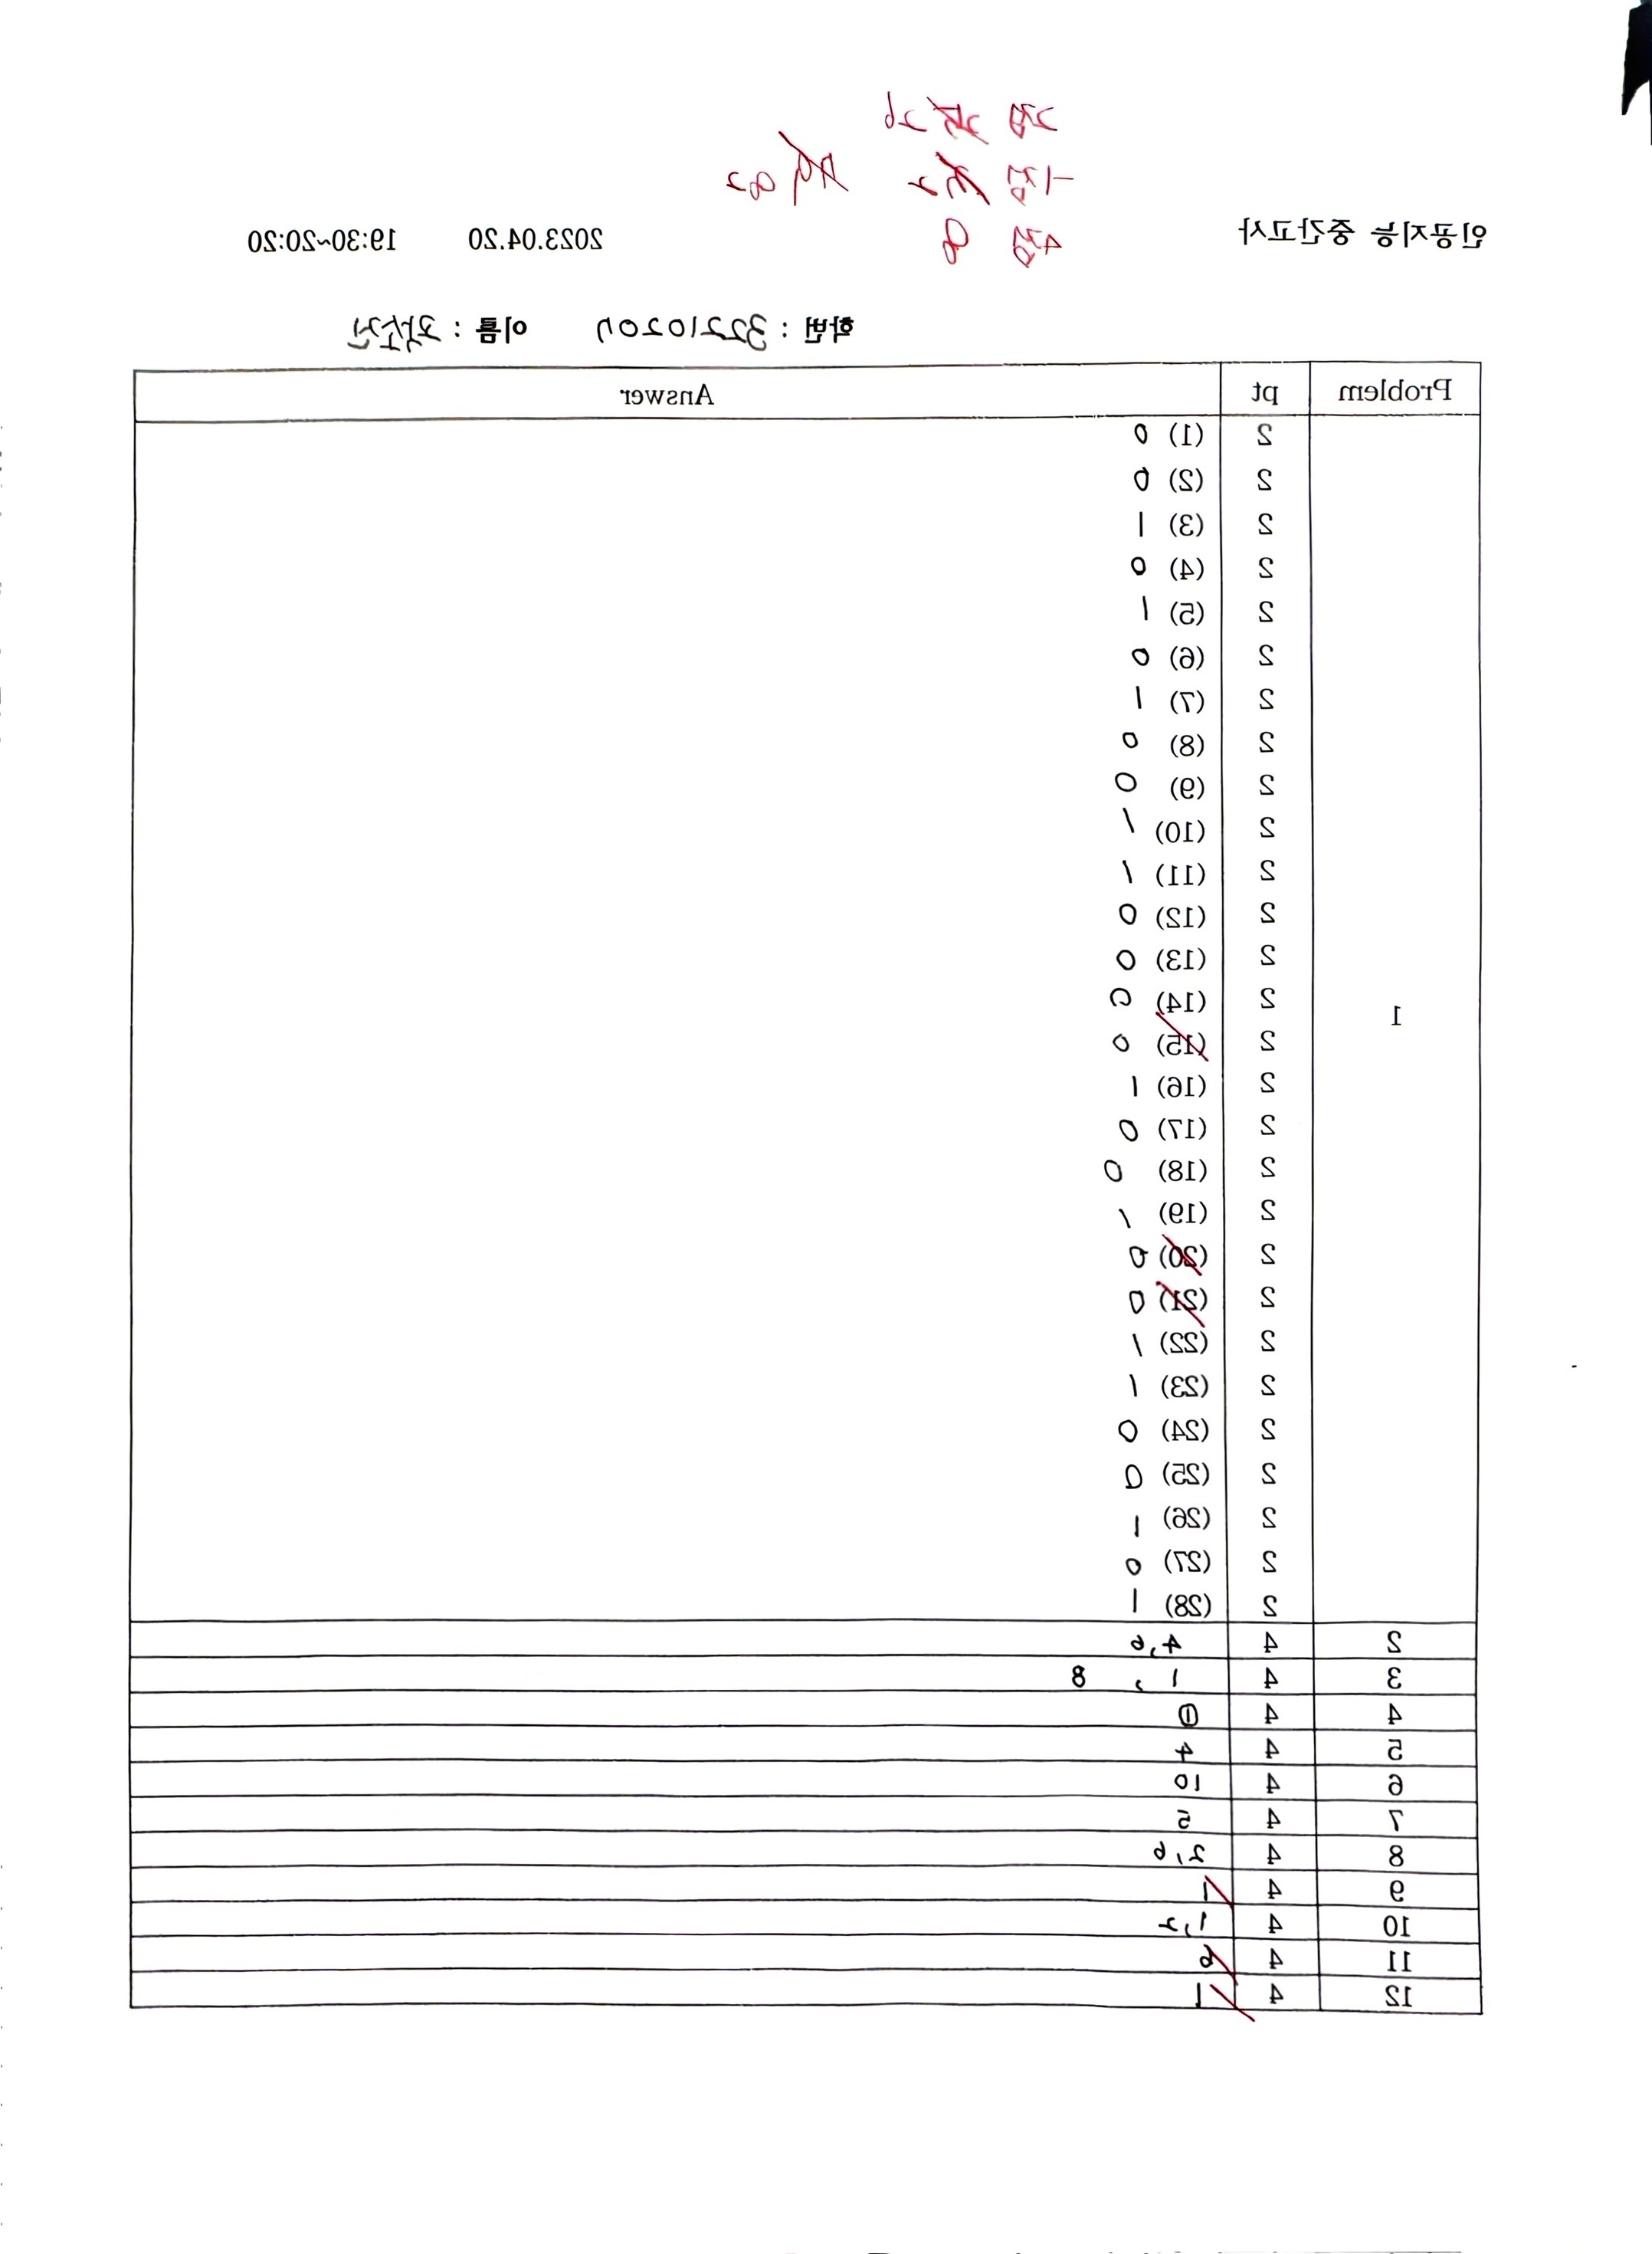 2점 26
-1점 2 82
4점 8
인공지능 중간고사 2023.04.20 19:30~20:20
학번 : 32210207 이름 :
Problem pt Answer
1
2 (1) 0
2 (2) 0
2 (3) 1
2 (4) 0
2 (5) 1
2 (6) 0
2 (7) 1
2 (8) 0
2 (9) 0
2 (10) 1
2 (11) 1
2 (12) 0
2 (13) 0
2 (14) 0
2 (15) 0
2 (16) 1
2 (17) 0
2 (18) 0
2 (19) 1
2 (20) 0
2 (21) 0
2 (22) 1
2 (23) 1
2 (24) 0
2 (25) 0
2 (26) 1
2 (27) 0
2 (28) 1
2 4 4,6
3 4 1, 8
4 4 ①
5 4 4
6 4 10
7 4 5
8 4 2,6
9 4 1
10 4 1,2
11 4 6
12 4 1